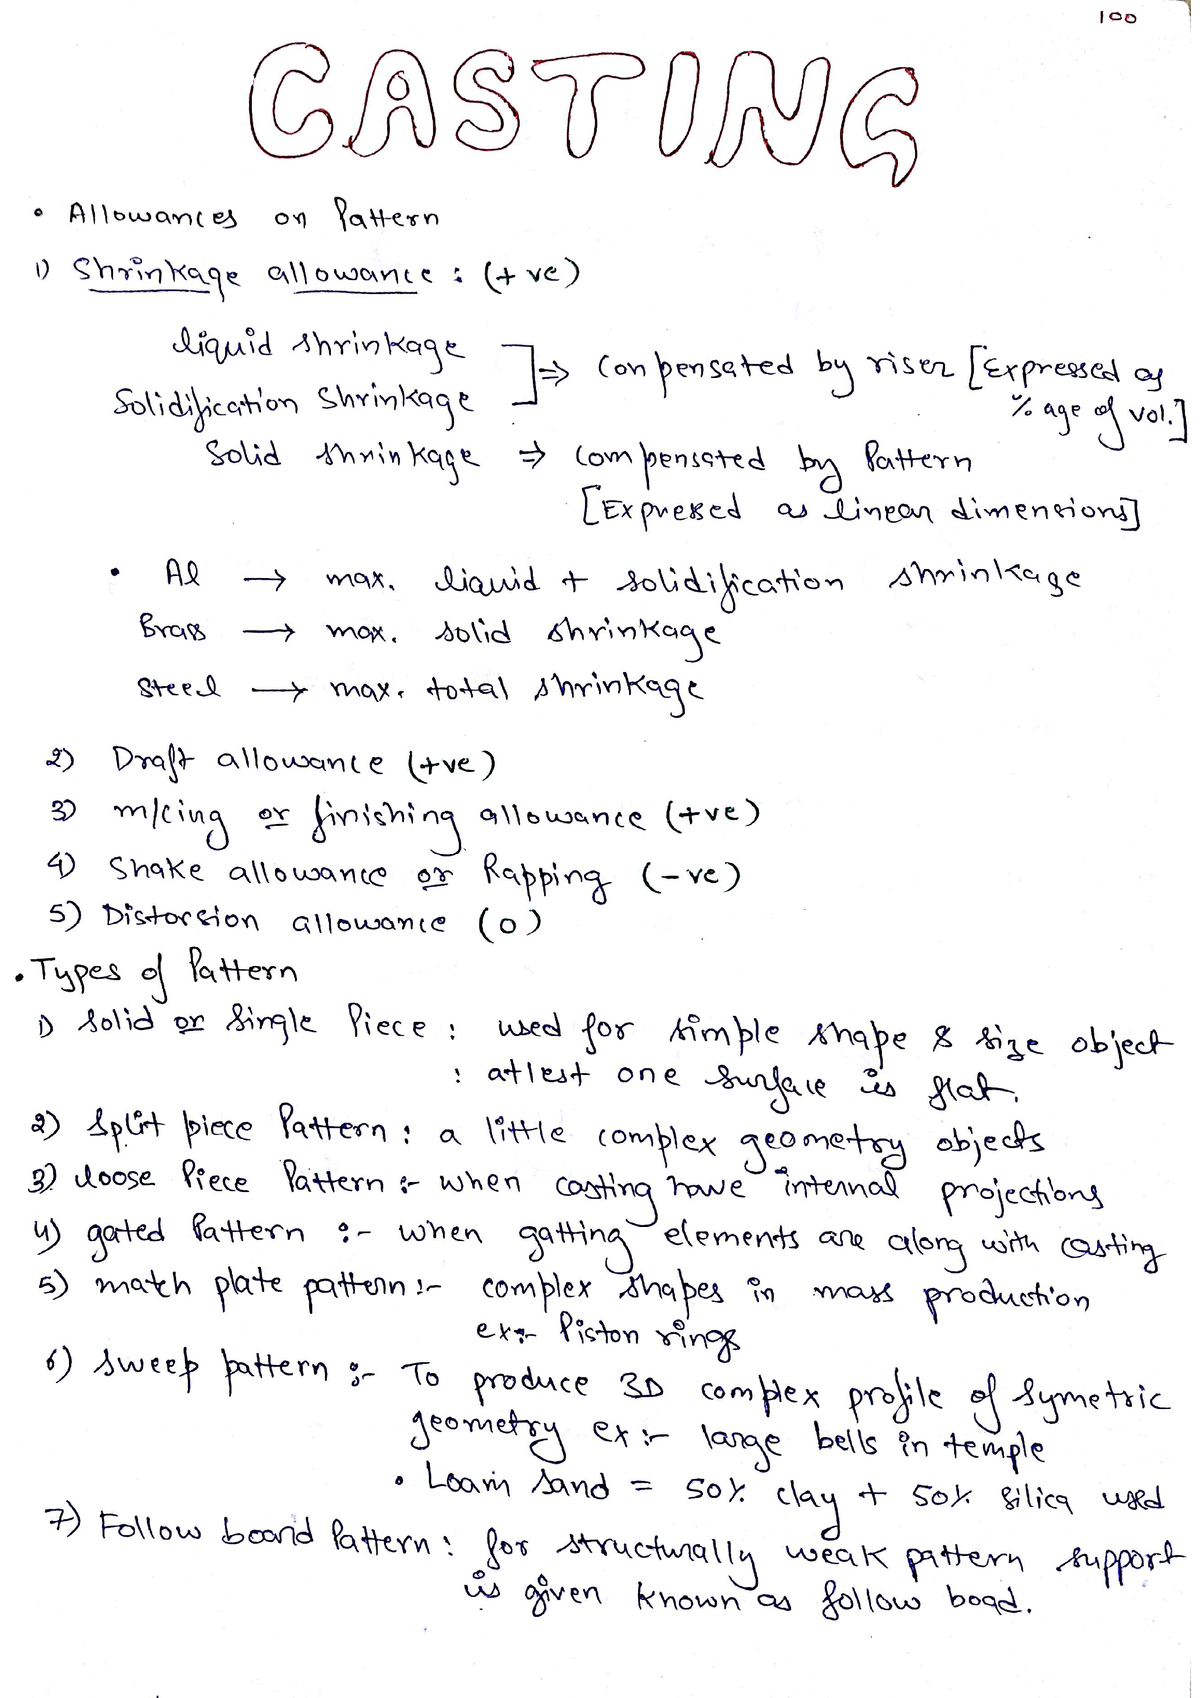 100
CASTING
• Allowances on Pattern
1) Shrinkage allowance : (+ve)
liquid shrinkage
Solidification Shrinkage
] ⇒ Compensated by riser [Expressed as % age of vol.]
Solid shrinkage ⇒ Compensated by Pattern
[Expressed as linear dimensions]
• Al → max. liquid + solidification shrinkage
Brass → max. solid shrinkage
Steel → max. total shrinkage
2) Draft allowance (+ve)
3) m/cing or finishing allowance (+ve)
4) Shake allowance or Rapping (-ve)
5) Distorsion allowance (0)
• Types of Pattern
1) Solid or Single Piece : used for simple shape & size object
: atlest one surface is flat.
2) Split piece Pattern : a little complex geometry objects
3) loose Piece Pattern :- when casting have internal projections
4) gated Pattern :- when gatting elements are along with casting
5) match plate pattern :- complex shapes in mass production
ex:- Piston rings
6) Sweep pattern :- To produce 3D complex profile of Symetric
geometry ex :- large bells in temple
• Loam sand = 50% clay + 50% silica used
7) Follow board Pattern : for structurally weak pattern support
is given known as follow boad.